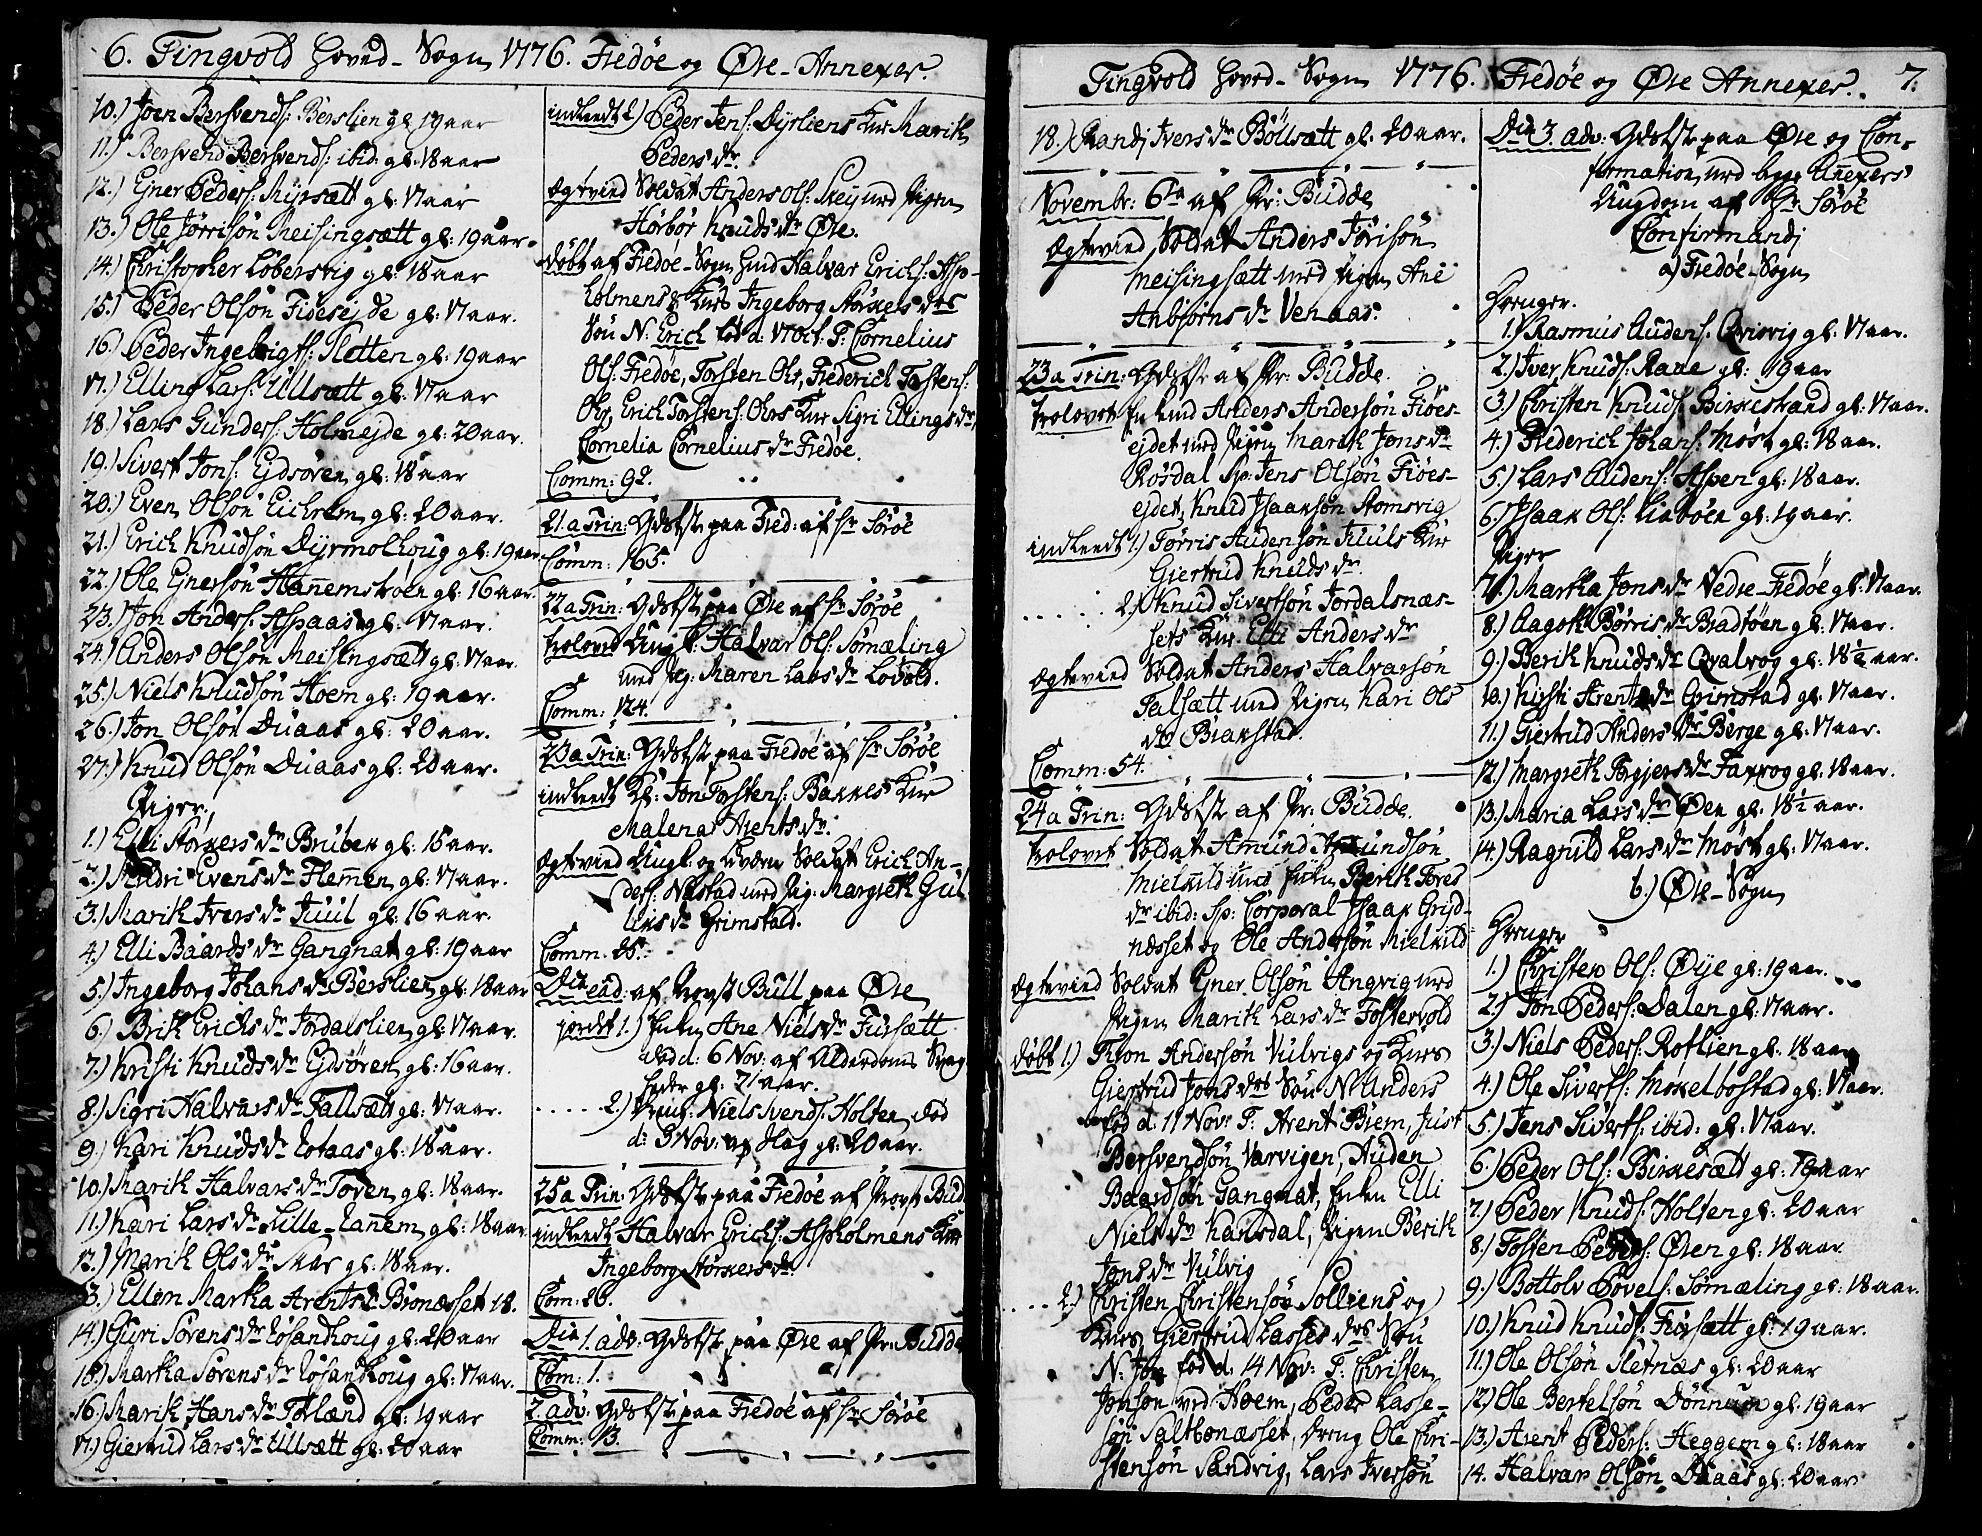 6. Tingvold Hoved-Sogn 1776. Fredøe og Øre-Annexer.
10.) Joen Bersvends: Berslien gl: 19 aar
11.) Bersvend Bersvends: ibid: gl: 18 aar
12.) Egner Peders: Myrsætt gl: 17 aar
13.) Ole Jørrisøn Meisingsætt gl: 19 aar.
14.) Christopher Løbersvig gl: 18 aar
15.) Peder Olsøn Fiøesejde gl: 17 aar.
16.) Peder Ingebrigts: Sletten gl: 19 aar
17.) Elling Lars: Ullsætt gl: 17 aar
18.) Lars Gunders: Holmejde gl: 20 aar.
19.) Sivert Jons: Ejdsøren gl: 18 aar
20.) Even Olsøn Eichrem gl: 20 aar.
21.) Erich Knudsøn Dyrmolhoug gl: 19 aar
22.) Ole Egnersøn Hannemstrøen gl: 16 aar.
23.) Jon Anders: Aspaas gl: 17 aar.
24.) Anders Olsøn Meisingsætt gl: 17 aar.
25.) Niels Knudsøn Hoem gl: 19 aar.
26.) Jon Olsøn Duaas gl: 20 aar.
27.) Knud Olsøn Duaas gl: 20 aar.
Piger.
1.) Elli Størkers dr Bruben gl: 15 aar.
2.) Sildri Evens dr Flemmen gl: 17 aar.
3.) Marith Ivers dr Juul gl: 16 aar.
4.) Elli Baards dr Gangnat gl: 19 aar
5.) Ingeborg Johans dr Berslien gl: 18 aar
6.) Brith Erichs dr Jordalslien gl: 17 aar.
7.) Kristi Knuds dr Ejdsøren gl: 16 aar.
8.) Sigri Halvars dr Fallsætt gl: 17 aar.
9.) Kari Knuds dr Estaas gl: 18 aar.
10.) Marith Halvars dr Toven gl: 18 aar.
11.) Kari Lars dr Lille-Hannem gl: 18 aar.
12.) Marith Ols dr Aar gl: 18 aar.
13.) Ellen Martha Arents dr Bronæsset 18.
14.) Guri Sørens dr Løsandhoug gl: 20 aar
15.) Martha Sørens dr Løsandhoug gl: 17 aar.
16.) Marith Hans dr Torland gl: 19 aar
17.) Giertrud Lars dr Ullsætt gl: 20 aar
indleedt 2) Peder Jens: Dyrliens Kue Marith
Peders dr.
Ægtevied Soldat Anders Ols: Meg med Pigen
Hørbør Knuds dr Øre.
døbt af Fredøe-Sogn Hmd Halvar Erichs: Asp-
holmens & Kues Ingeborg Størkers drs
Søn N: Erich fød d: 17 Oct: F: Cornelius
Ols: Fredøe, Torsten Ohr, Frederich Torstens:
Ohr, Erich Torstens: Ohrs Kue Sigri Ellings dr
Cornelia Cornelius dr Fredøe.
Comm: 92.
21. a Trin: Gdstst paa Fred: af Hr Sørøe
Comm: 165.
22 a Trin: Gdstst paa Øre af Hr Sørøe
trolovet Ungk: Halvar Ols: Sømæling
med Pig: Maren Lars dr Lovold.
Comm: 124.
23 a Trin: Gdstst paa Fredøe af Hr Sørøe
indleedt Jon Torstens: Bakkes Kue
Malena Arents dr.
Ægtevied Ungk: og Soldat Erich An-
ders: Nastad med Pig: Margreth Gul-
liks dr Grimstad.
Comm: 26.
Die ead: af Provst Bull paa Øre
jordet 1.) Enken Ane Niels dr Fiursætt
død d: 6 Nov: af Alderdoms Svag-
heder gl: 71 aar.
2.) Dreng: Niels Svends: Holten død
d: 3 Nov: gl: 20 aar.
25 a Trin: Gdstst paa Fredøe af Provst Bud
indleedt Halvar Erichs: Aspholmens Kue
Ingeborg Størkers dr
Com: 26.
Dca 1. adv: Gdstst paa Øre af Pr: Budde
Com: 1.
2. adv: Gdstst paa Fredøe af Hr Sørøe
Comm: 13.
Tingvold Hoved-Sogn 1776. Fredøe og Øre Annexer. 7.
18.) Randi Ivers dr Böllsætt gl: 20 aar.
Novembr: 6te af Pr: Budde
Ægtevied Soldat Anders Jörisøn
Meisingsætt med Pigen Ane
Anbjørns dr Venaas.
23 a Trin: Gdstst af Pr: Budde.
trolovet Enkmd Anders Andersøn Fiøes-
ejdet med Pigen Marith Jons dr
Rosdal Sp: Jens Olsøn Fiøes-
ejdet, Knud Isaaksøn Stomsvig
indleedt 1.) Torris Audensøn Juuls Kue
Giertrud Knuds dr
2.) Knud Sivertsøn Jordalsnæs-
sets Kue Elli Anders dr
Ægtevied Soldat Anders Halvarsøn
Talsætt med Pigen Kari Ols
dr Biaxstad.
Comm: 54.
24 a Trin: Gdstst af Pr: Budde.
trolovet Soldat Amund Amundsøn
Mielkild med Enken Berith Tores
dr ibid: Sp: Corporal Isaak Grijd-
næsset og Ole Andersøn Mielkild
Ægtevied Soldat Egner Olsøn Angvig med
Pigen Marith Lars dr Fostervold
døbt 1.) Tron Andersøn Vulvigs og Kues
Giertrud Jons drs Søn N: Anders
fød d: 11 Novr F: Arent Biem, Just
Bersvendsøn Varvigen, Auden
Baardsøn Gangnat, Enken Elli
Niels dr Hansdal, Pigen Berith
Jons dr Vulvig
2.) Christen Christensøn Solliens og
Kues Giertrud Lasses drs Søn
N: Jon fød d: 14 Nov: F: Christen
Jonsøn ved Hoem, Peder Lasse-
søn Saltbonæsset, Dreng Ole Chri-
stensøn Sandvig, Lars Iversøn
Dca 3. adv: Gdstst paa Øre og Con-
firmation med begge Annexers
Ungdom af Hr Sørøe
Confirmandi
a) Fredøe-Sogn
Drenger.
1.) Rasmus Audens: Qvisvig gl: 17 aar.
2.) Iver Knuds: Rane gl: 19 aar
3.) Christen Knuds: Birkestrand gl: 17 aar.
4.) Frederich Johans: Møst gl: 18 aar.
5.) Lars Audens: Aspen gl: 18 aar.
6.) Isaak Ols: Liabøen gl: 19 aar.
Piger
7.) Martha Jons dr Nedre-Fredøe gl: 17 aar.
8.) Aagoth Børris dr Bradtøen gl: 17 aar.
9.) Berith Knuds dr Qvalvog gl: 18 1/2 aar.
10.) Kirsti Arents dr Grimstad gl: 17 aar.
11.) Giertrud Anders dr Berge gl: 17 aar.
12.) Margreth Torgiers dr Faxvog gl: 18 aar.
13.) Maria Lars dr Øen gl: 18 1/2 aar.
14.) Ragnild Lars dr Møst gl: 17 aar.
b.) Øre-Sogn
Drenger
1.) Christen Ols: Øije gl: 19 aar.
2.) Jon Peders: Dalen gl: 17 aar.
3.) Niels Peders: Roflien gl: 18 aar
4.) Ole Siverts: Mokelbostad gl: 17 aar.
5.) Jens Siverts: ibid: gl: 17 aar.
6.) Peder Ols: Birkesætt gl: 19 aar
7.) Peder Knuds: Holten gl: 20 aar
8.) Tosten Peders: Øren gl: 18 aar
9.) Bottolv Povels: Sømæling gl: 18 aar.
10.) Knud Knuds: Fiøsætt gl: 19 aar.
11.) Ole Olsøn Sletnæs gl: 20 aar
12.) Ole Bertelsøn Dönnum gl: 19 aar
13.) Arent Peders: Heggem gl: 18 aar
14. Halvar Olsøn Duaas gl: 20 aar